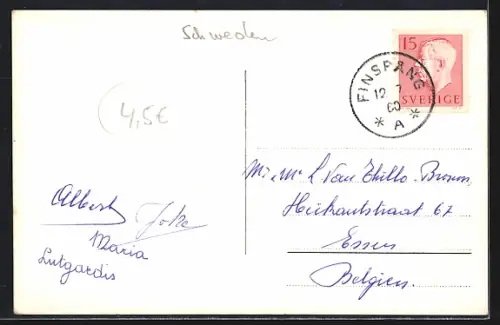 Schweden
4,5€
15
SVERIGE
FINSPÅNG
12 7
60
* A *
Mr & Mr L Van Thillo-Broun
Heikantstraat 67
Essen
Belgien.
Albert Joke
Maria
Lutgardis